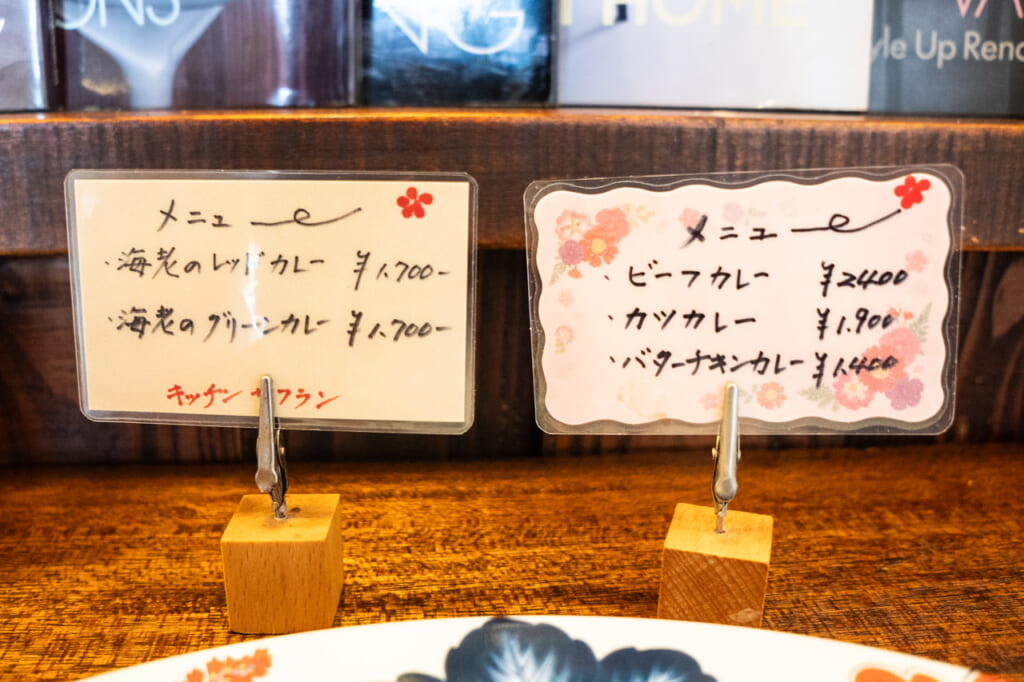 ONS
NG
HOME
VA
yle Up Reno
メニュー
・海老のレッドカレー ¥1.700-
・海老のグリーンカレー ¥1.700-
キッチン サフラン
メニュー
・ビーフカレー ¥2400
・カツカレー ¥1.900
・バターチキンカレー ¥1.400